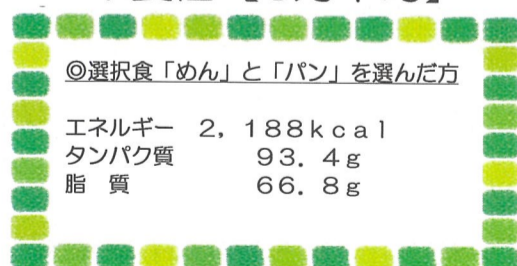 ◎選択食「めん」と「パン」を選んだ方
エネルギー　2，188kcal
タンパク質　　　93．4g
脂　質　　　　　66．8g